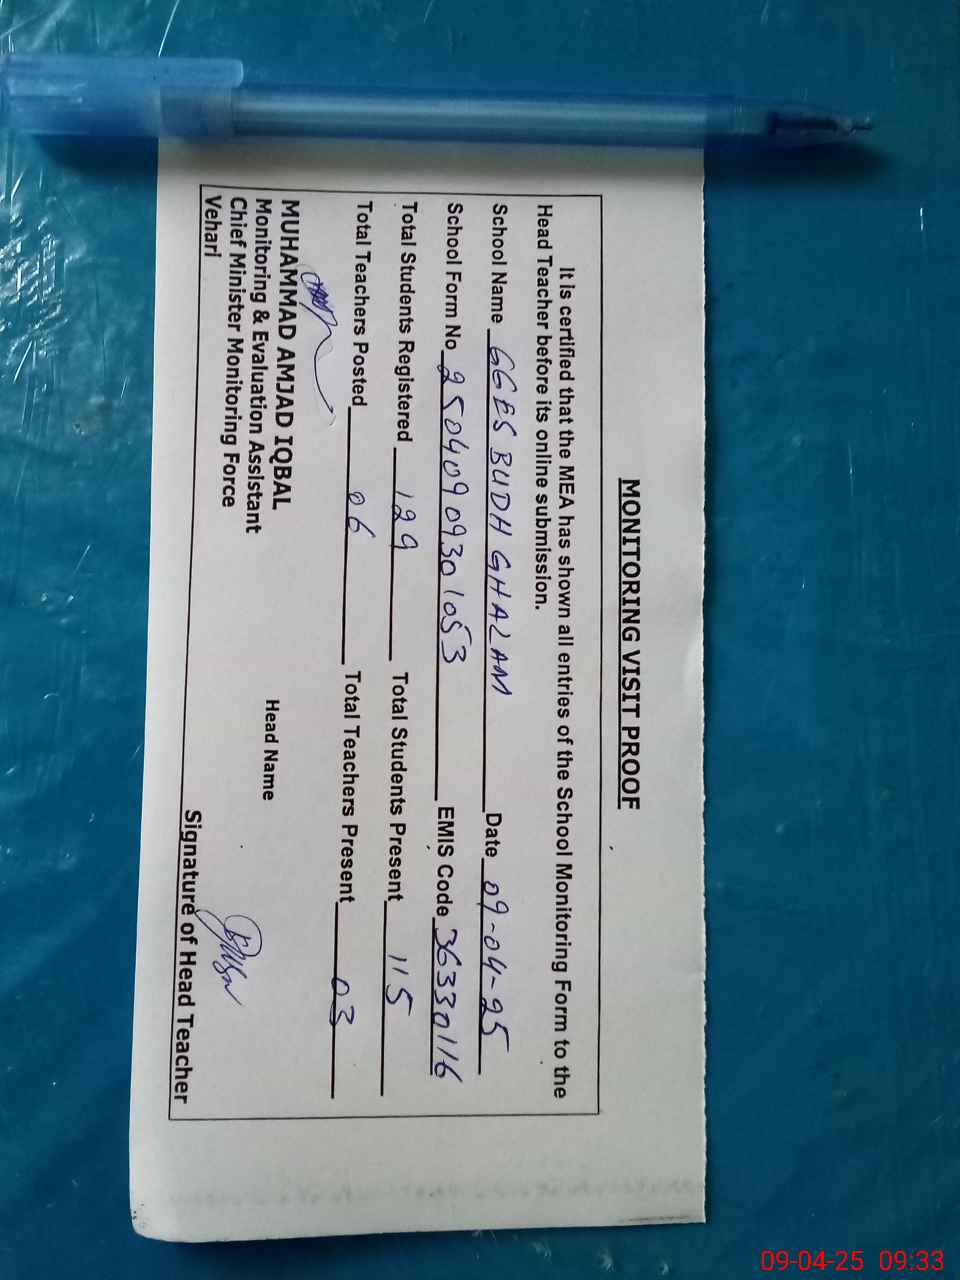 MONITORING VISIT PROOF
It is certified that the MEA has shown all entries of the School Monitoring Form to the
Head Teacher before its online submission.
School Name GGES BUDH GHALAM Date 09-04-25
School Form No 25040909301053 EMIS Code 36330116
Total Students Registered 129 Total Students Present 115
Total Teachers Posted 06 Total Teachers Present 03
MUHAMMAD AMJAD IQBAL
Monitoring & Evaluation Assistant
Head Name
Chief Minister Monitoring Force
Vehari
Signature of Head Teacher
09-04-25 09:33